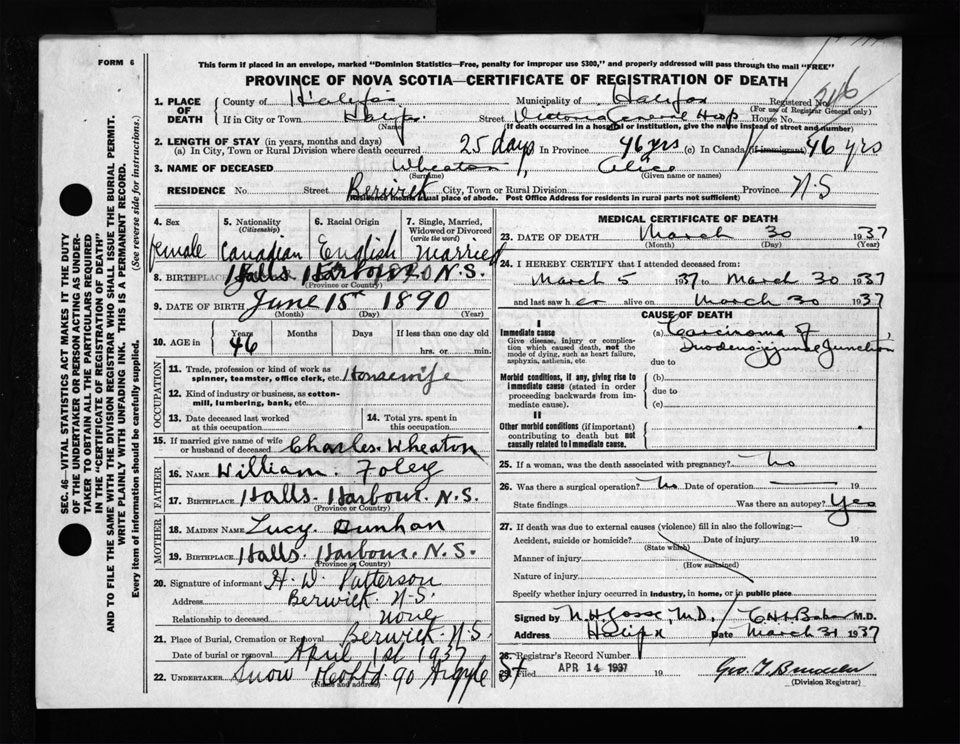 FORM 6
This form if placed in an envelope, marked "Dominion Statistics—Free, penalty for improper use $300," and properly addressed will pass through the mail "FREE"
PROVINCE OF NOVA SCOTIA—CERTIFICATE OF REGISTRATION OF DEATH
1. PLACE OF DEATH { County of Halifax Municipality of Halifax Registered No.
(For use of Registrar General only)
If in City or Town Halifax Street Victoria General Hosp House No.
(Name) (If death occurred in a hospital or institution, give the name instead of street and number)
2. LENGTH OF STAY (in years, months and days)
(a) In City, Town or Rural Division where death occurred 25 days In Province 46 yrs (c) In Canada (if immigrant) 46 yrs
3. NAME OF DECEASED Wheaton, Alice
(Surname) (Given name or names)
RESIDENCE No. Street Berwick City, Town or Rural Division Province N.S
(Residence means usual place of abode. Post Office Address for residents in rural parts not sufficient)
SEC. 46—VITAL STATISTICS ACT MAKES IT THE DUTY
OF THE UNDERTAKER OR PERSON ACTING AS UNDER-
TAKER TO OBTAIN ALL THE PARTICULARS REQUIRED
IN THE "CERTIFICATE OF REGISTRATION OF DEATH"
AND TO FILE THE SAME WITH THE DIVISION REGISTRAR WHO SHALL ISSUE THE BURIAL PERMIT.
WRITE PLAINLY WITH UNFADING INK. THIS IS A PERMANENT RECORD.
Every item of information should be carefully supplied. (See reverse side for instructions.)
4. Sex female
5. Nationality (Citizenship) Canadian
6. Racial Origin English
7. Single, Married, Widowed or Divorced (write the word) married
8. BIRTHPLACE Halls Harbour N.S.
(Province or Country)
9. DATE OF BIRTH June 15 1890
(Month) (Day) (Year)
10. AGE in Years 46 Months Days If less than one day old
hrs. or min.
OCCUPATION
11. Trade, profession or kind of work as spinner, teamster, office clerk, etc. Housewife
12. Kind of industry or business, as cotton-mill, lumbering, bank, etc.
13. Date deceased last worked at this occupation
14. Total yrs. spent in this occupation
15. If married give name of wife or husband of deceased Charles Wheaton
FATHER
16. NAME William Foley
17. BIRTHPLACE Halls Harbour. N.S.
(Province or Country)
MOTHER
18. MAIDEN NAME Lucy Dunhan
19. BIRTHPLACE Halls Harbour. N.S.
(Province or Country)
20. Signature of informant H. W. Patterson
Address Berwick N.S.
Relationship to deceased none
21. Place of Burial, Cremation or Removal Berwick N.S
Date of burial or removal April 1st 1937
22. UNDERTAKER Snow 90 Argyle St
(Name and address)
MEDICAL CERTIFICATE OF DEATH
23. DATE OF DEATH March 30 1937
(Month) (Day) (Year)
24. I HEREBY CERTIFY that I attended deceased from
March 5 1937 to March 30 1937
and last saw her alive on March 30 1937
CAUSE OF DEATH
I
Immediate cause
Give disease, injury or complication which caused death, not the mode of dying, such as heart failure, asphyxia, asthenia, etc.
(a) Carcinoma of
Duodenojejunal Junction
due to
Morbid conditions, if any, giving rise to immediate cause (stated in order proceeding backwards from immediate cause).
(b)
due to
(c)
II
Other morbid conditions (if important) contributing to death but not causally related to immediate cause.
25. If a woman, was the death associated with pregnancy? No
26. Was there a surgical operation? No Date of operation 19
State findings Was there an autopsy? Yes
27. If death was due to external causes (violence) fill in also the following:—
Accident, suicide or homicide? Date of injury 19
(State which)
Manner of injury
(How sustained)
Nature of injury
Specify whether injury occurred in industry, in home, or in public place
Signed by N. H. Gosse, M.D. / M.D.
Address Halifax Date March 31 1937
28. Registrar's Record Number
29. Filed APR 14 1937 19
(Division Registrar)